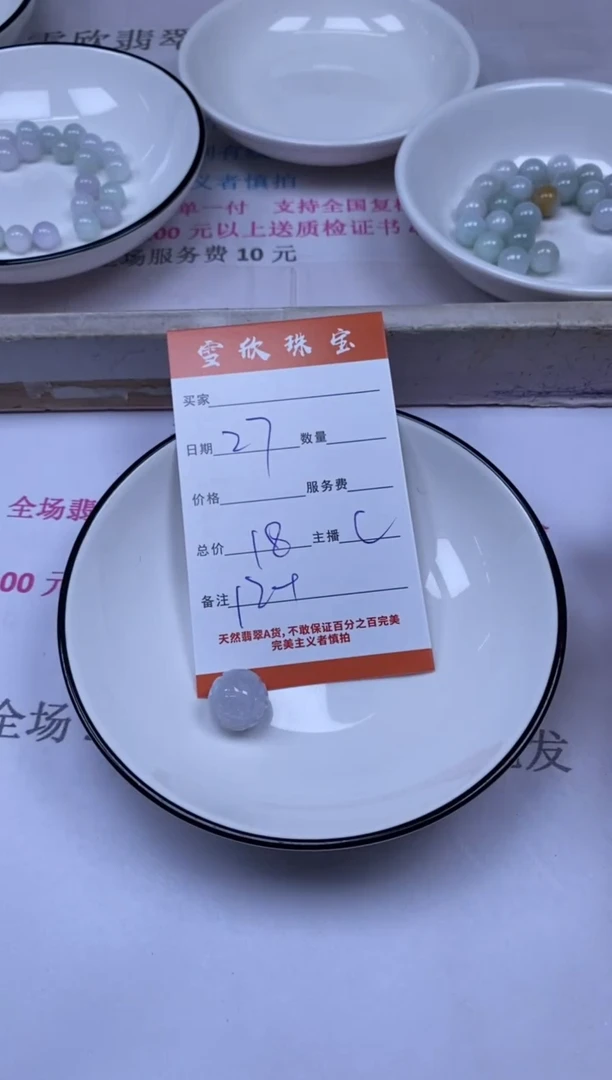 雪欣翡翠
义者慎拍
单一付 支持全国复检
00元以上送质检证书
场服务费10元
雪欣珠宝
买家
日期 27 数量
价格 服务费
总价 18 主播 C
备注
天然翡翠A货,不敢保证百分之百完美
完美主义者慎拍
全场翡
00元
全场
发